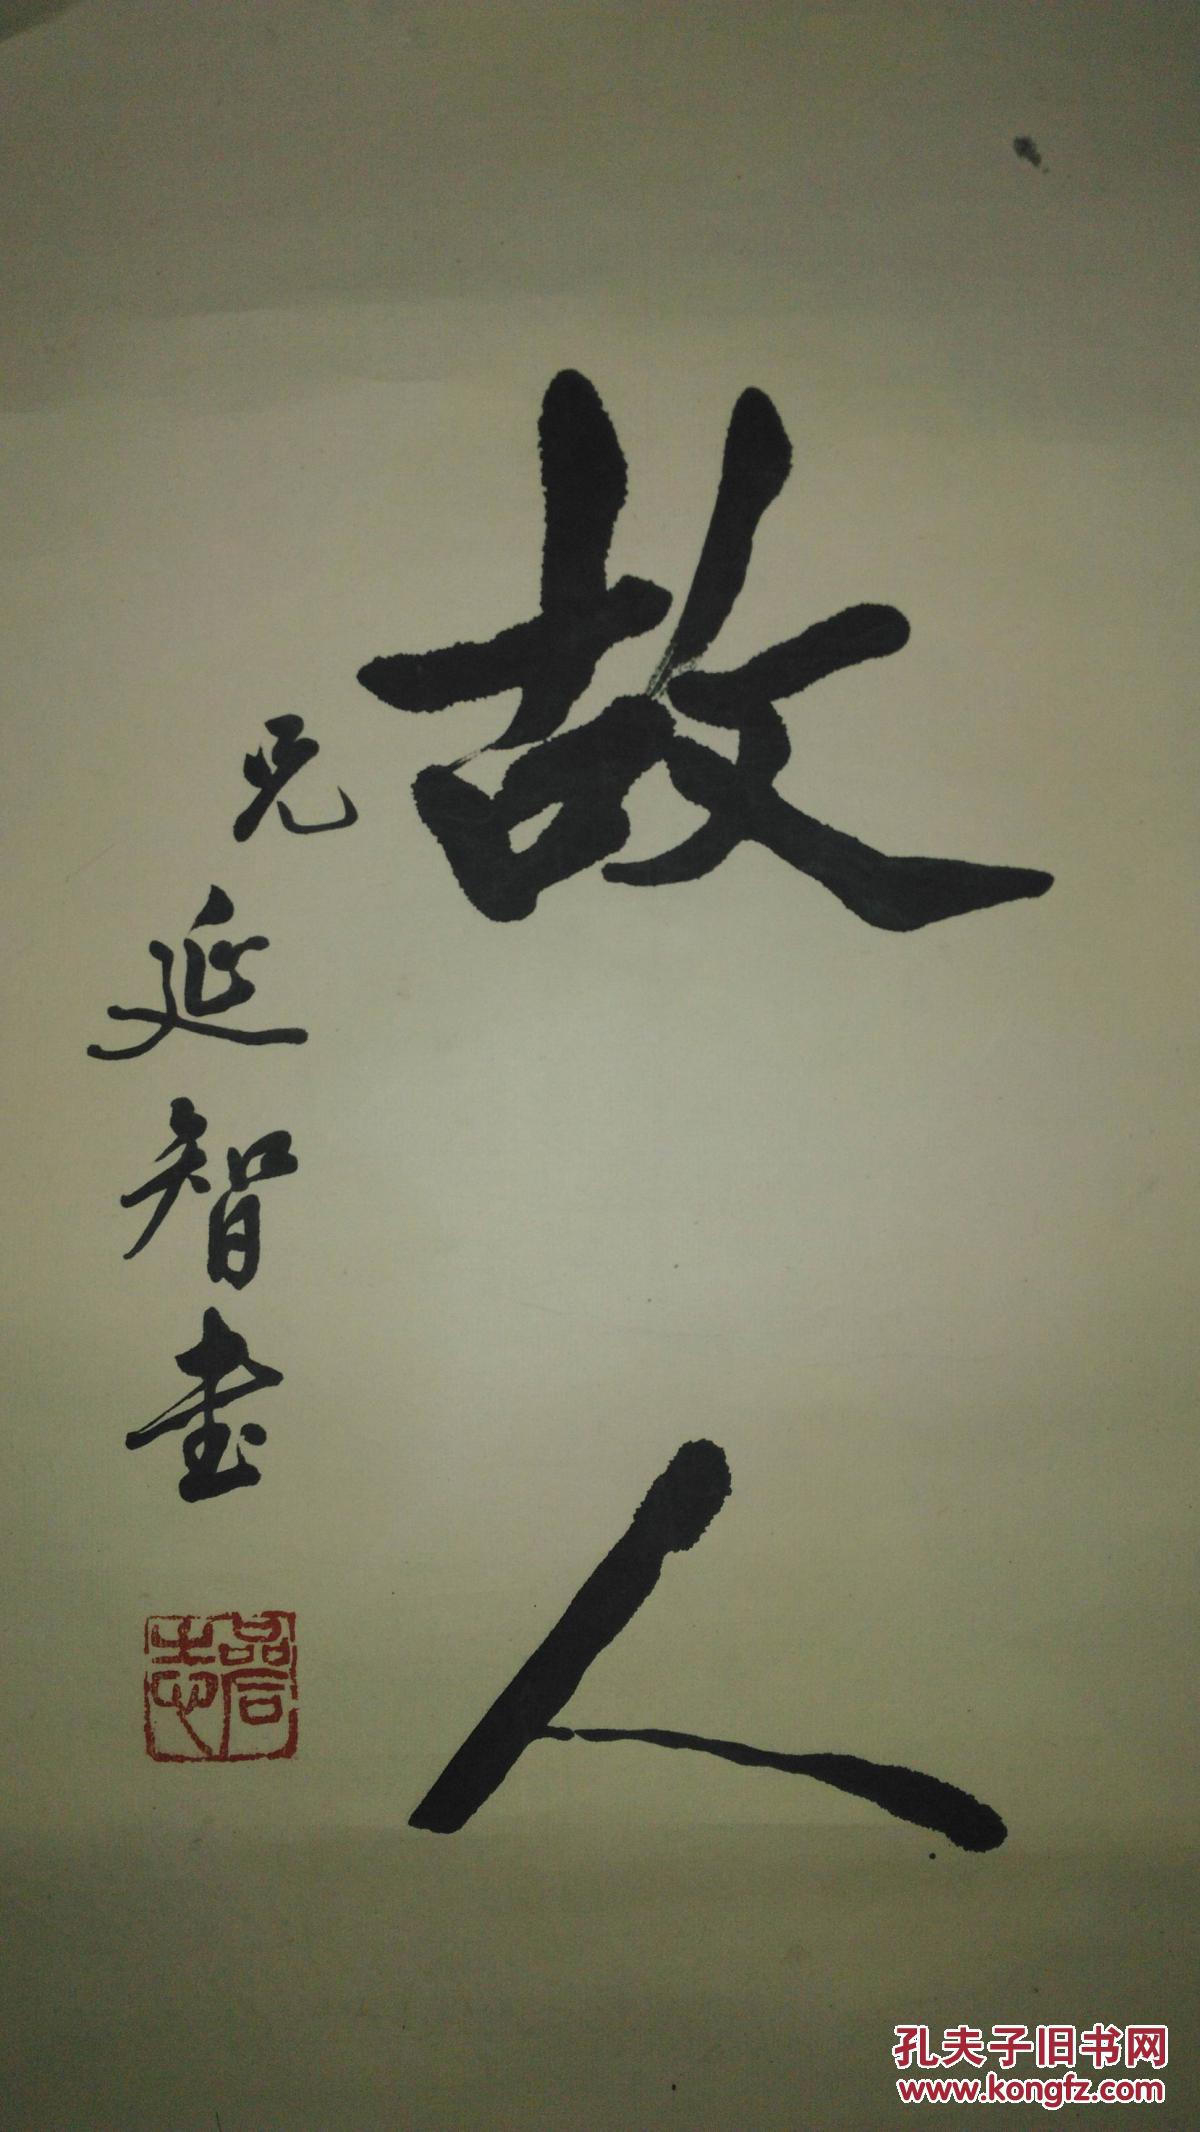 故人
兄
延智书
孔夫子旧书网
www.kongfz.com